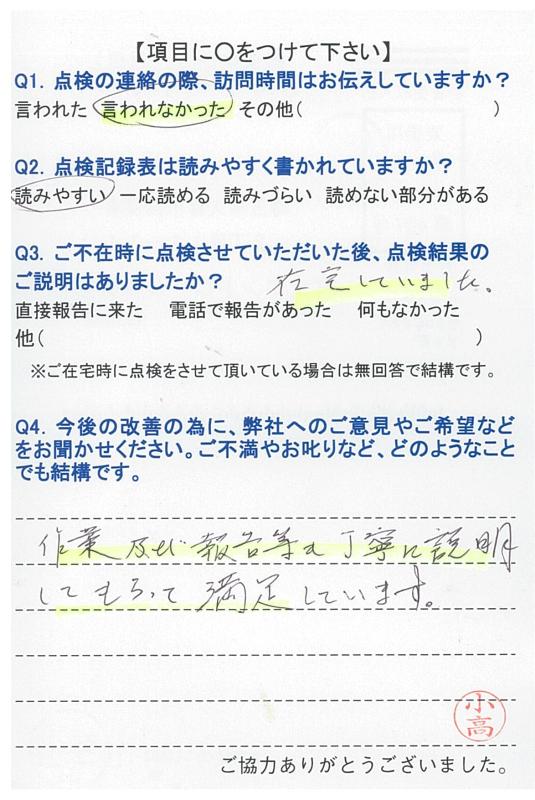 【項目に〇をつけて下さい】
Q1. 点検の連絡の際、訪問時間はお伝えしていますか?
言われた 言われなかった その他( )
Q2. 点検記録表は読みやすく書かれていますか?
読みやすい 一応読める 読みづらい 読めない部分がある
Q3. ご不在時に点検させていただいた後、点検結果の
ご説明はありましたか? 在宅していました。
直接報告に来た 電話で報告があった 何もなかった
他( )
※ご在宅時に点検をさせて頂いている場合は無回答で結構です。
Q4. 今後の改善の為に、弊社へのご意見やご希望など
をお聞かせください。ご不満やお叱りなど、どのようなこと
でも結構です。
作業及び報告等も丁寧に説明
してもらって満足しています。
小高
ご協力ありがとうございました。